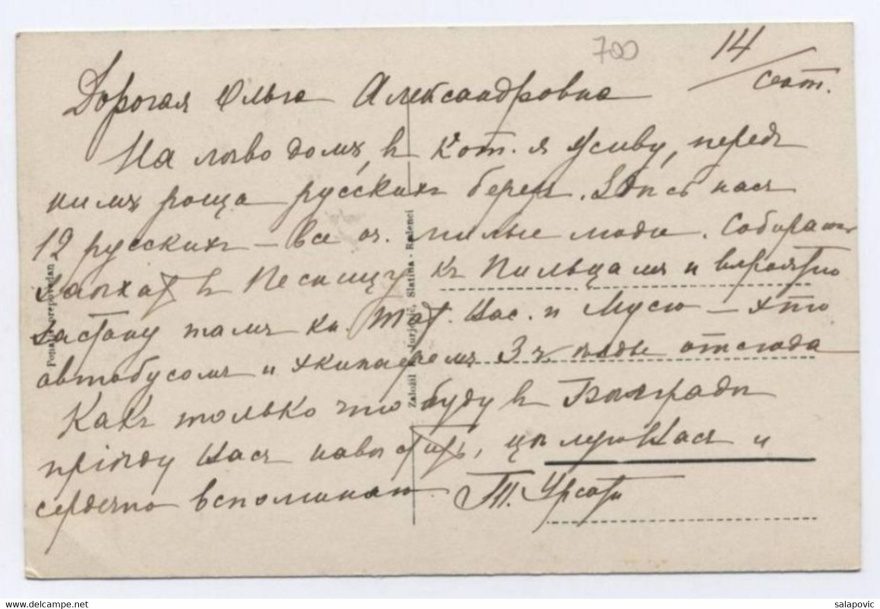 700
14
/ Сент.
Дорогая Ольга Александровна
На домъ, въ кот. я живу, передъ
нимъ роща русскихъ березъ. Здѣсь насъ
12 русскихъ – все оч. милые люди. Собираюсь
заѣхать въ къ Пильцамъ и вѣроятно
застану тамъ кн. Мусю – это
автобусомъ и 3 ч. ѣзды отсюда
Какъ только что буду въ Бѣлградѣ
пріѣду Васъ навѣстить, цѣлую Васъ и
сердечно вспоминаю. Т.
Založil Jurjević, Slatina - Radenci